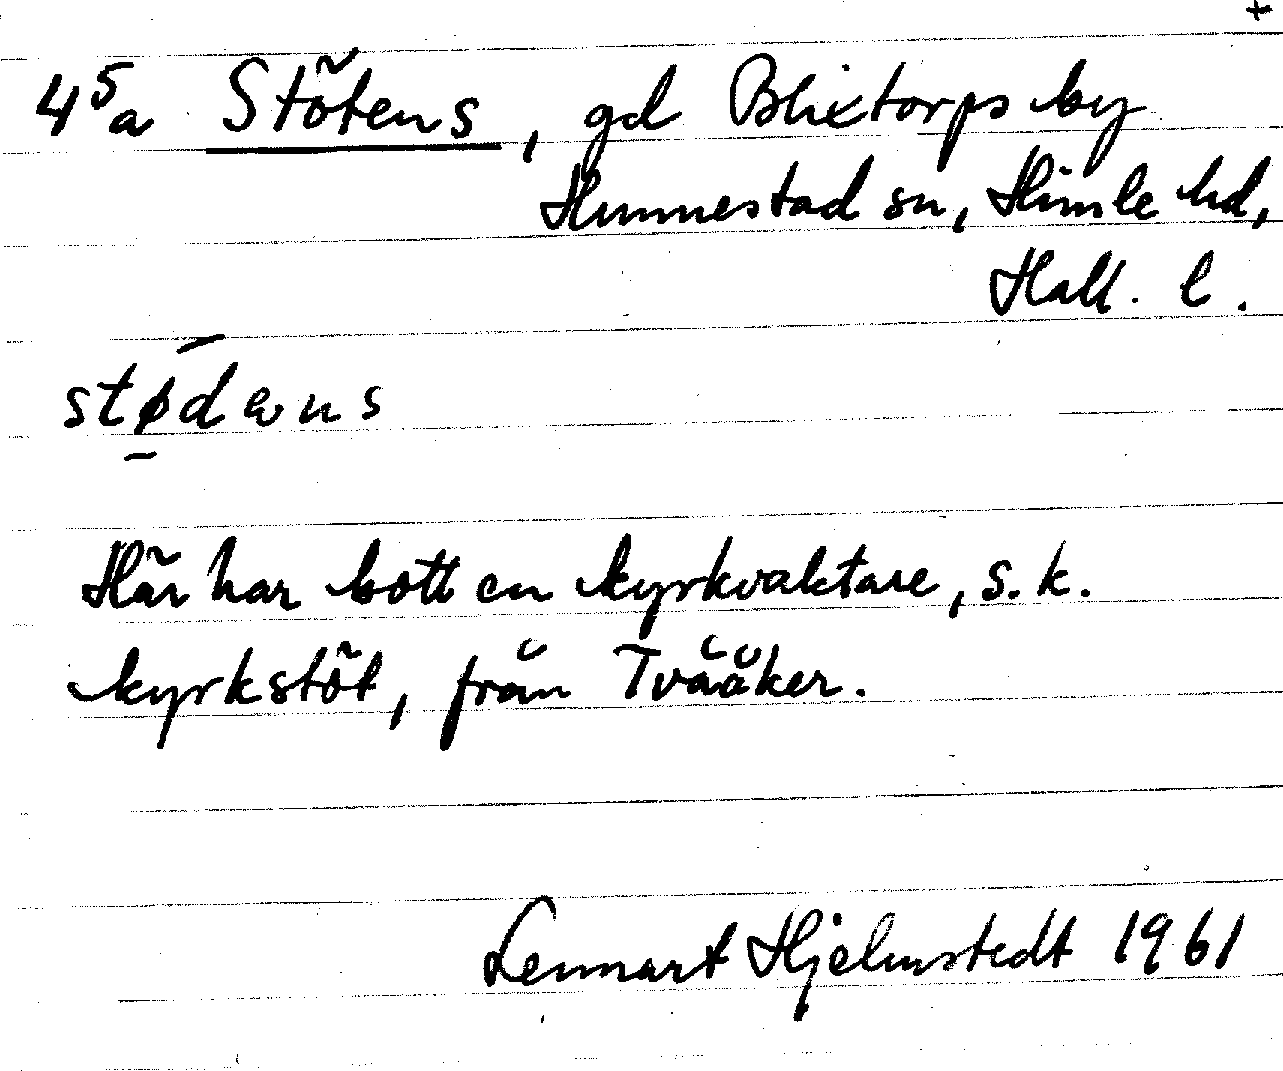 +
4⁵a Stötens, gd Blixtorps by
Hunnestad sn, Himle hd,
Hall. l.
stødəns
Här har bott en kyrkvaktare, s.k.
kyrkstöt, från Tvååker.
Lennart Hjelmstedt 1961